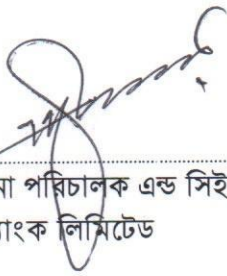 না পরিচালক এন্ড সিই
াংক লিমিটেড